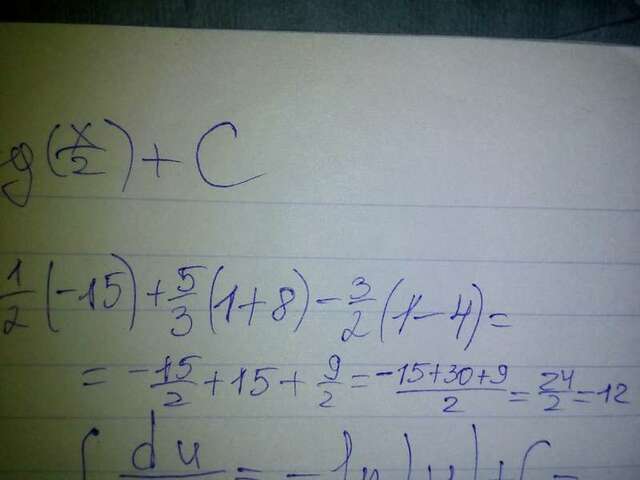 g(x/2) + C
1/2 (-15) + 5/3 (1+8) - 3/2 (1-4) =
= -15/2 + 15 + 9/2 = -15+30+9/2 = 24/2 = 12
∫ du = - ln |u| + C =